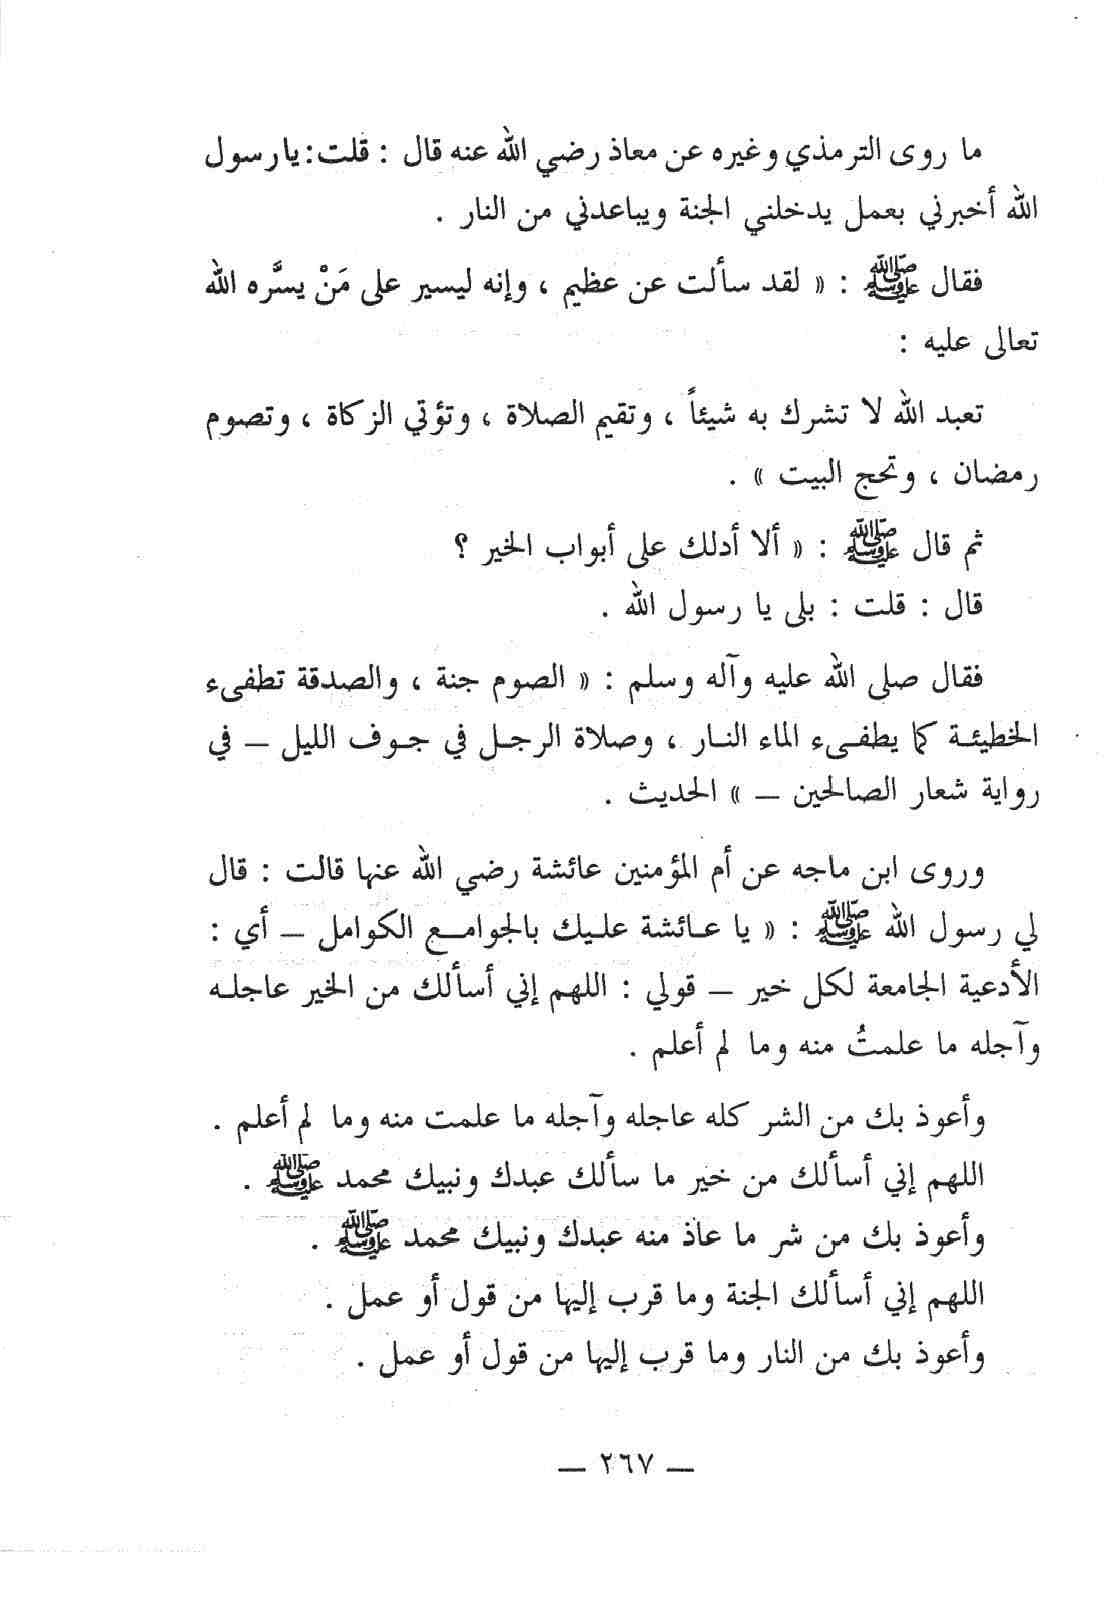 ما روى الترمذي وغيره عن معاذ رضي الله عنه قال : قلت: يا رسول
الله أخبرني بعمل يدخلني الجنة ويباعدني من النار .
فقال ﷺ : « لقد سألت عن عظيم ، وإنه ليسير على مَنْ يسَّره الله
تعالى عليه :
تعبد الله لا تشرك به شيئاً ، وتقيم الصلاة ، وتؤتي الزكاة ، وتصوم
رمضان ، وتحج البيت » .
ثم قال ﷺ : « ألا أدلك على أبواب الخير ؟
قال : قلت : بلى يا رسول الله .
فقال صلى الله عليه وآله وسلم : « الصوم جنة ، والصدقة تطفىء
الخطيئـة كما يطفـىء الماء النـار ، وصلاة الرجـل في جـوف الليل ــ في
رواية شعار الصالحين ــ » الحديث .
وروى ابن ماجه عن أم المؤمنين عائشة رضي الله عنها قالت : قال
لي رسول الله ﷺ : « يا عـائشة علـيك بالجوامـع الكوامل ــ أي :
الأدعية الجامعة لكل خير ــ قولي : اللهم إني أسألك من الخير عاجلـه
وآجله ما علمتُ منه وما لم أعلم .
وأعوذ بك من الشر كله عاجله وآجله ما علمت منه وما لم أعلم .
اللهم إني أسألك من خير ما سألك عبدك ونبيك محمد ﷺ .
وأعوذ بك من شر ما عاذ منه عبدك ونبيك محمد ﷺ .
اللهم إني أسألك الجنة وما قرب إليها من قول أو عمل .
وأعوذ بك من النار وما قرب إليها من قول أو عمل .
ــ ٢٦٧ ــ